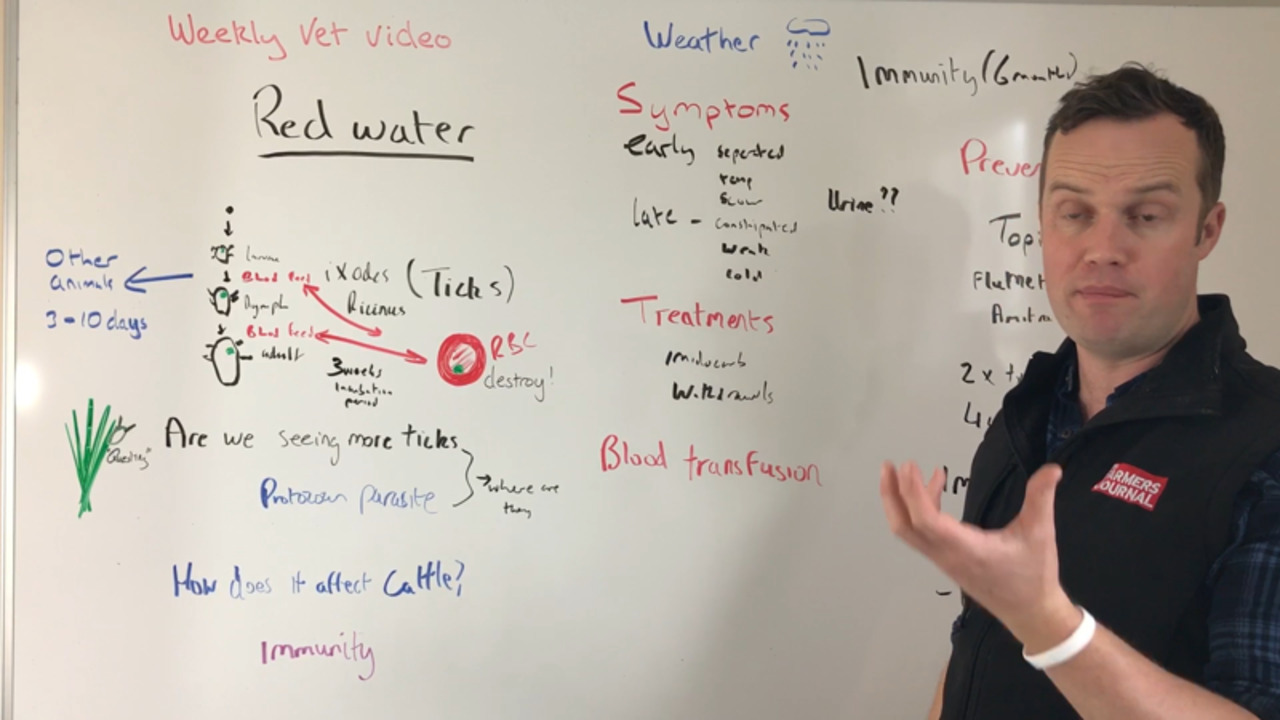 Weekly Vet video
Red water
Other
animals
3-10 days
Larvae
Blood feed
Nymph
Blood feed
adult
ixodes (Ticks)
Ricinus
3 weeks
Incubation
period
RBC
destroy!
"Questing"
Are we seeing more ticks
Protozoan parasite
→where are
they
How does it affect Cattle?
Immunity
Weather
Symptoms
early
temp
Scour
late - Constipated
Weak
cold
Urine??
Treatments
Imidocarb
Blood transfusion
Immunity (6 months)
Preve
Top
Flumet
2 x
FARMERS
JOURNAL